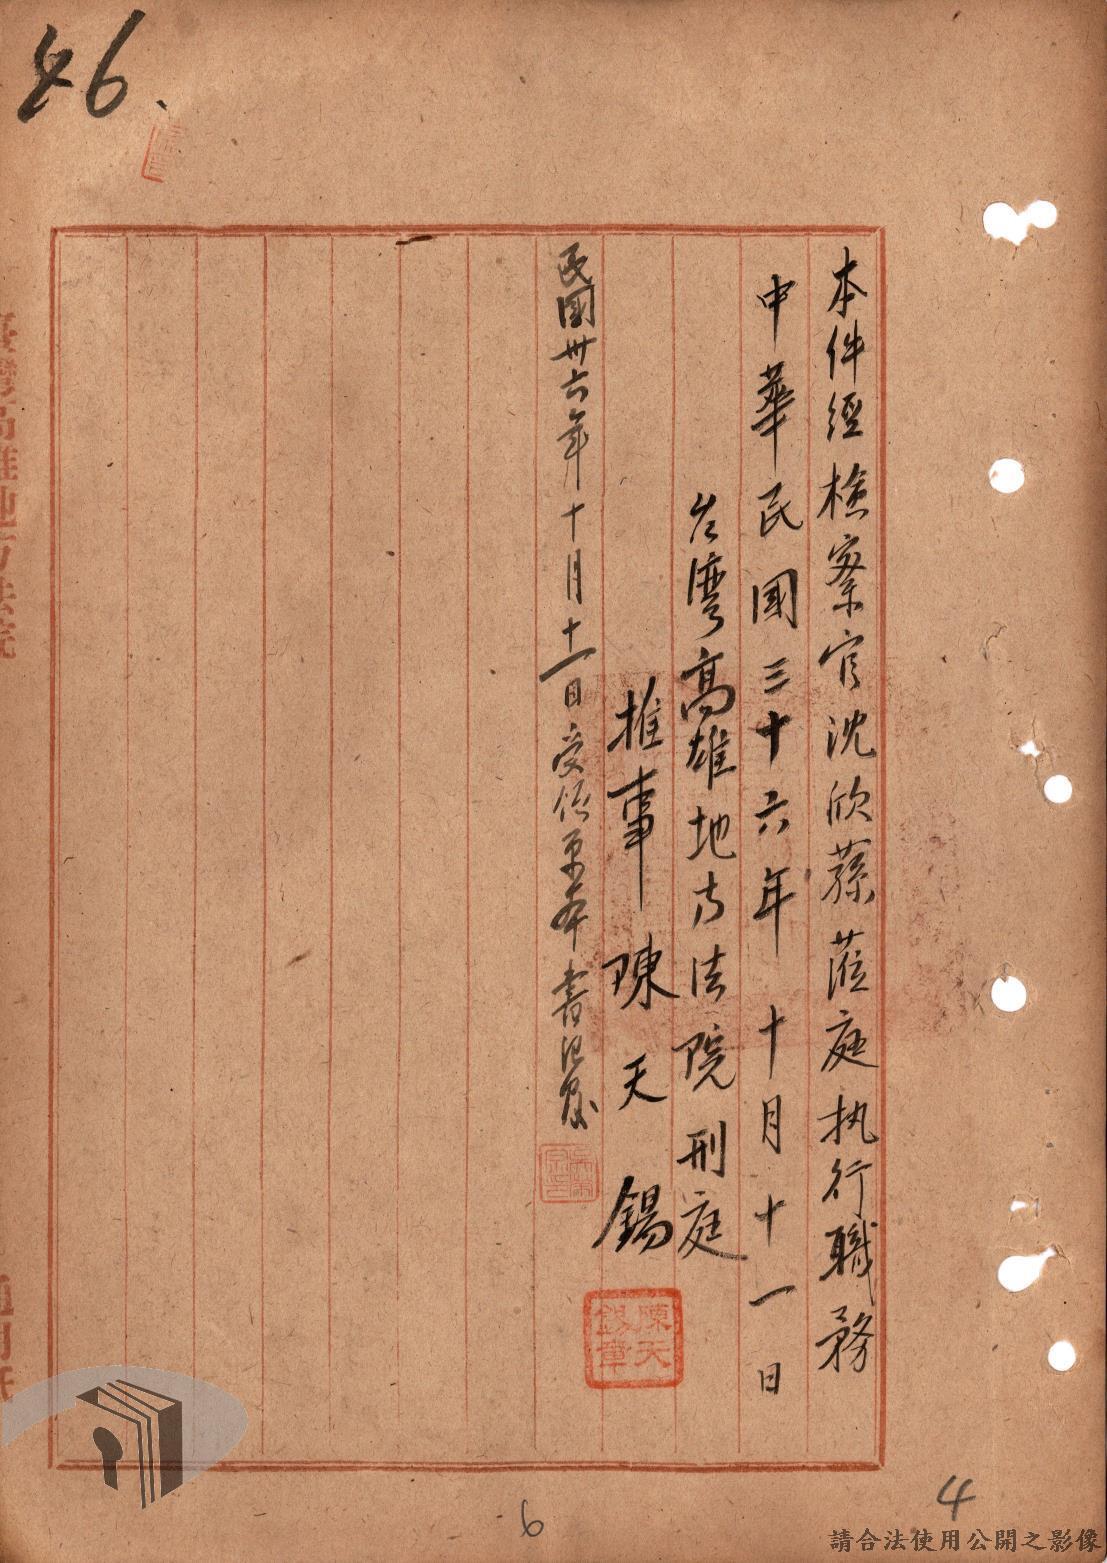 46.
本件經檢察官沈欣蓀蒞庭执行職務
中華民國三十六年十月十一日
台灣高雄地方法院刑庭
推事陳天錫
陳天錫章
民國卅六年十月十一日受領原本書記官
臺灣高雄地方法院
通用紙
6
4
請合法使用公開之影像